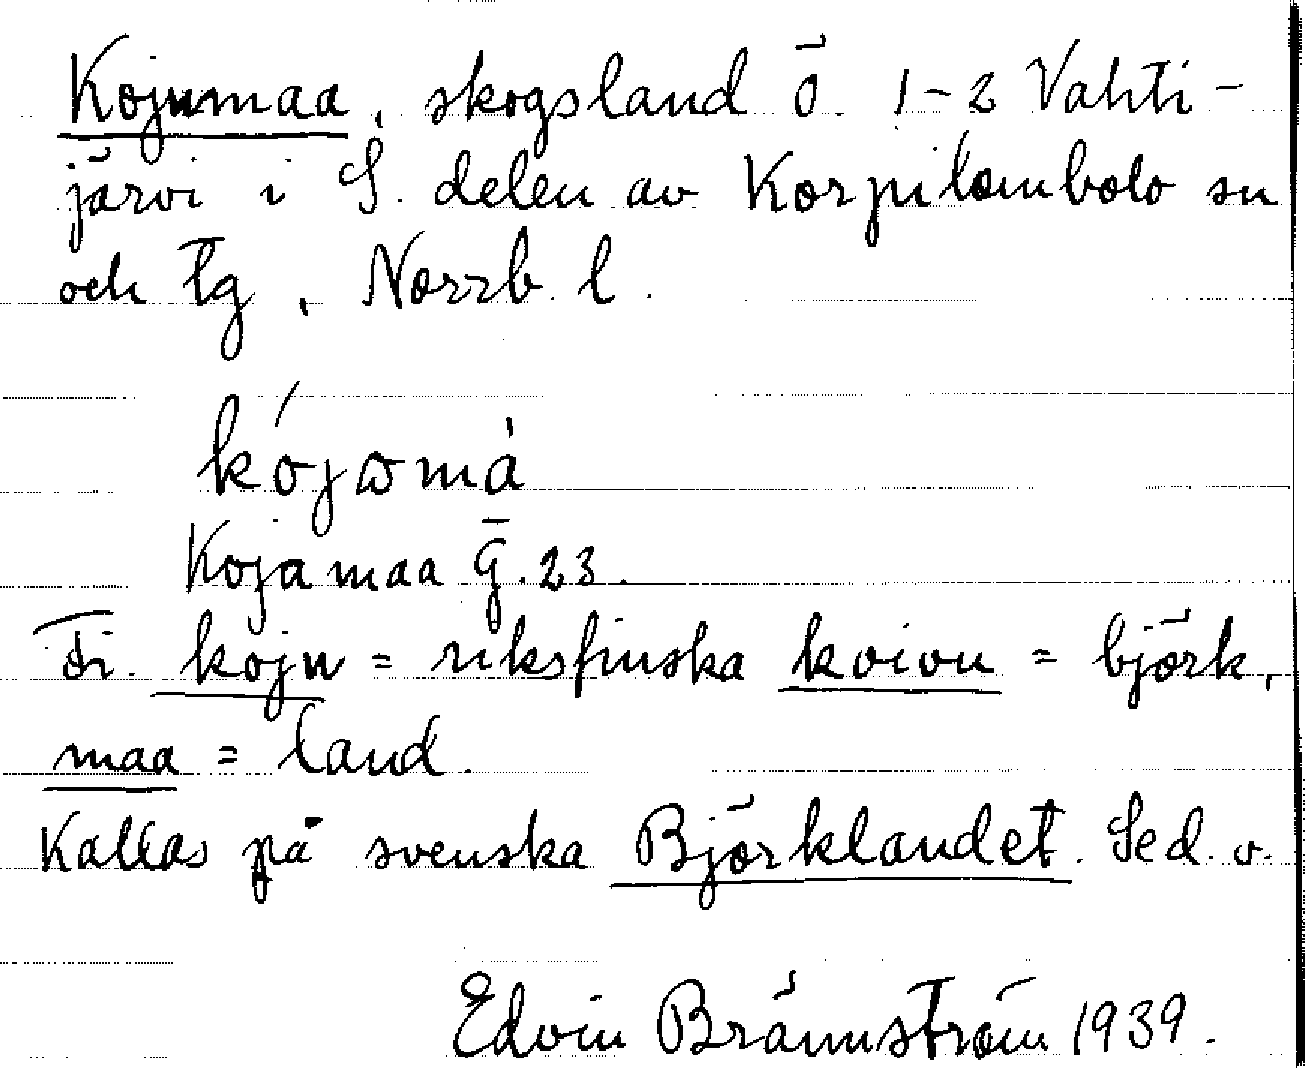 Kojumaa, skogsland Ö. 1-2 Vahti-
järvi i S. delen av Korpilombolo sn
och tg, Norrb. l.
kójωmà
Kojamaa Ḡ.23.
Fi. koju = riksfinska koivu = björk,
maa = land.
Kallas på svenska Björklandet. Se d. o.
Edvin Brännström 1939.